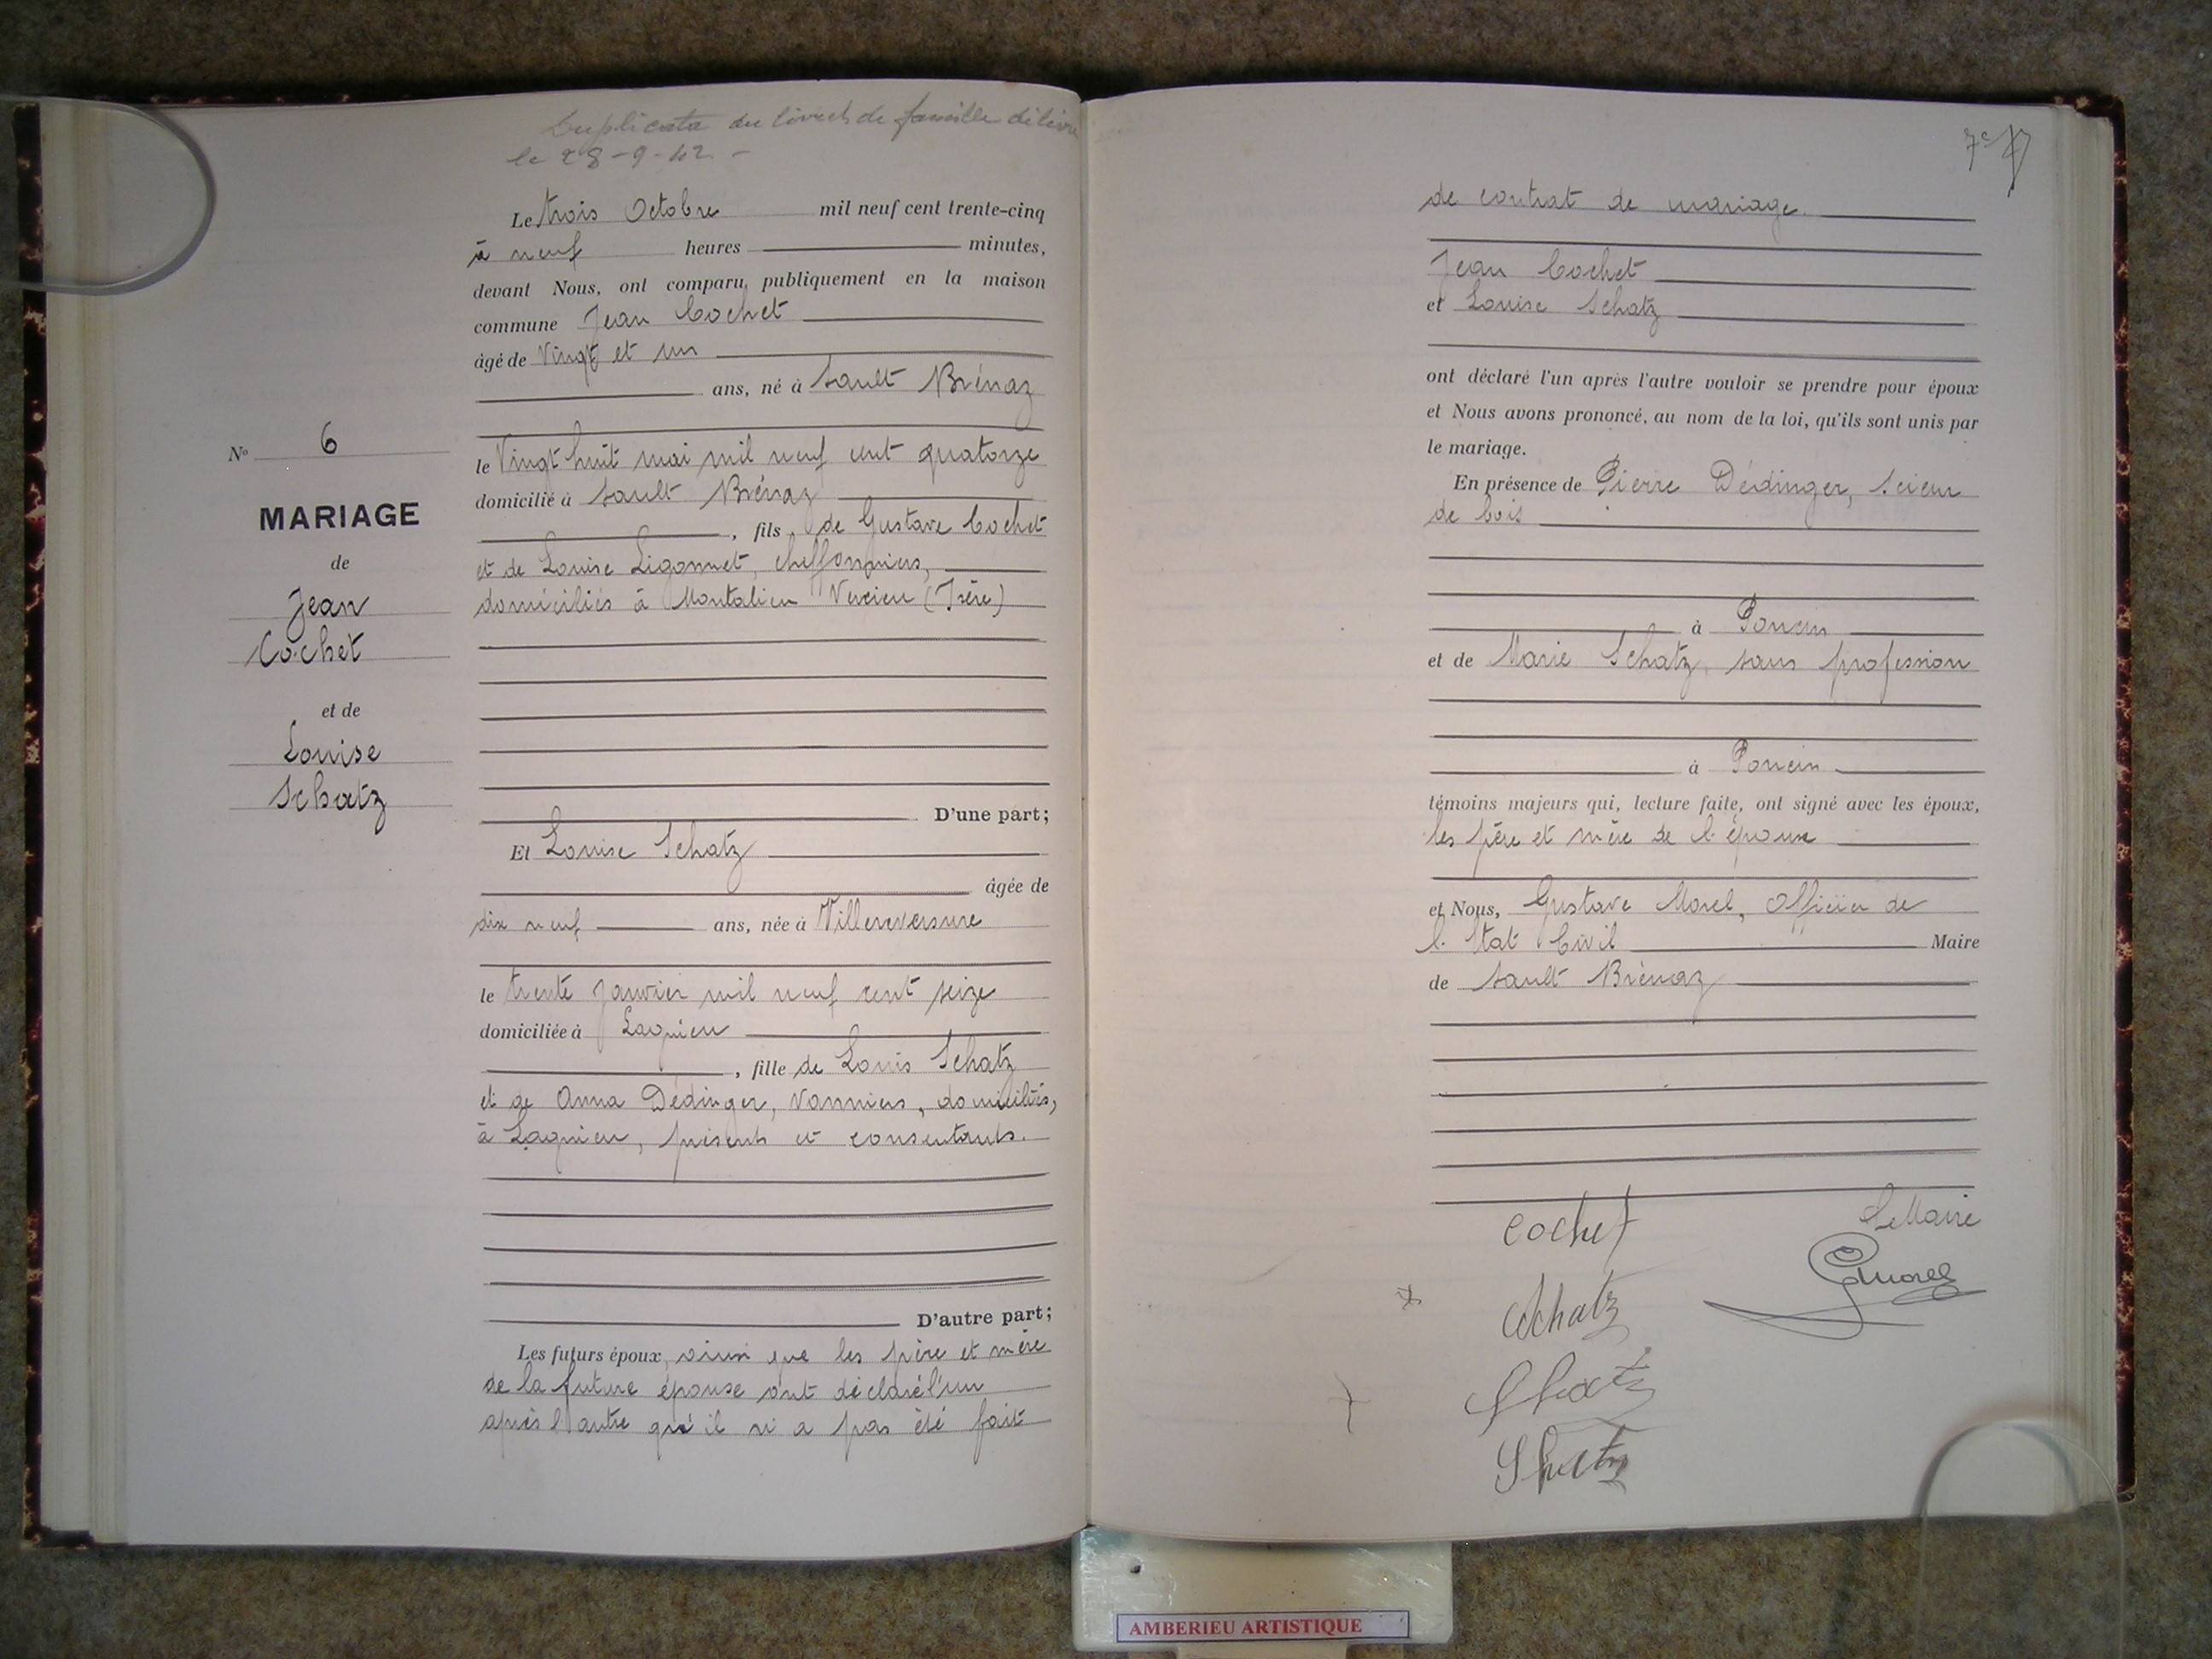 Duplicata du livret de famille délivré
le 28-9-42 -
Le trois Octobre mil neuf cent trente-cinq
à neuf heures minutes,
devant Nous, ont comparu publiquement en la maison
commune Jean Cochet
âgé de Vingt et un
ans, né à Sault Brénaz
N° 6
le Vingt huit mai mil neuf cent quatorze
domicilié à Sault Brénaz
MARIAGE
, fils de Gustave Cochet
de
et de Louise Ligonnet, cheffonniers,
Jean
domiciliés à Montalieu Vercieu (Isère)
Cochet
et de
Louise
Schatz
D'une part;
Et Louise Schatz
âgée de
dix neuf ans, née à Villereversure
le trente Janvier mil neuf cent seize
domiciliée à Lagnieu
, fille de Louis Schatz
et de Anna Dédinger, Vanniers, domiciliés,
à Lagnieu, présents et consentants.
D'autre part;
Les futurs époux, ainsi que les père et mère
de la future épouse ont déclaré l'un
après l'autre qu'il n'a pas été fait
7e
de contrat de mariage.
Jean Cochet
et Louise Schatz
ont déclaré l'un après l'autre vouloir se prendre pour époux
et Nous avons prononcé, au nom de la loi, qu'ils sont unis par
le mariage.
En présence de Pierre Dédinger, Scieur
de bois
à Poncin
et de Marie Schatz, sans profession
à Poncin
témoins majeurs qui, lecture faite, ont signé avec les époux,
les père et mère de l'épouse
et Nous, Gustave Morel, Officier de
l'Etat Civil Maire
de Sault Brénaz
Cochet
Le Maire
GMorel
Schatz
Schatz
Schatz
AMBERIEU ARTISTIQUE